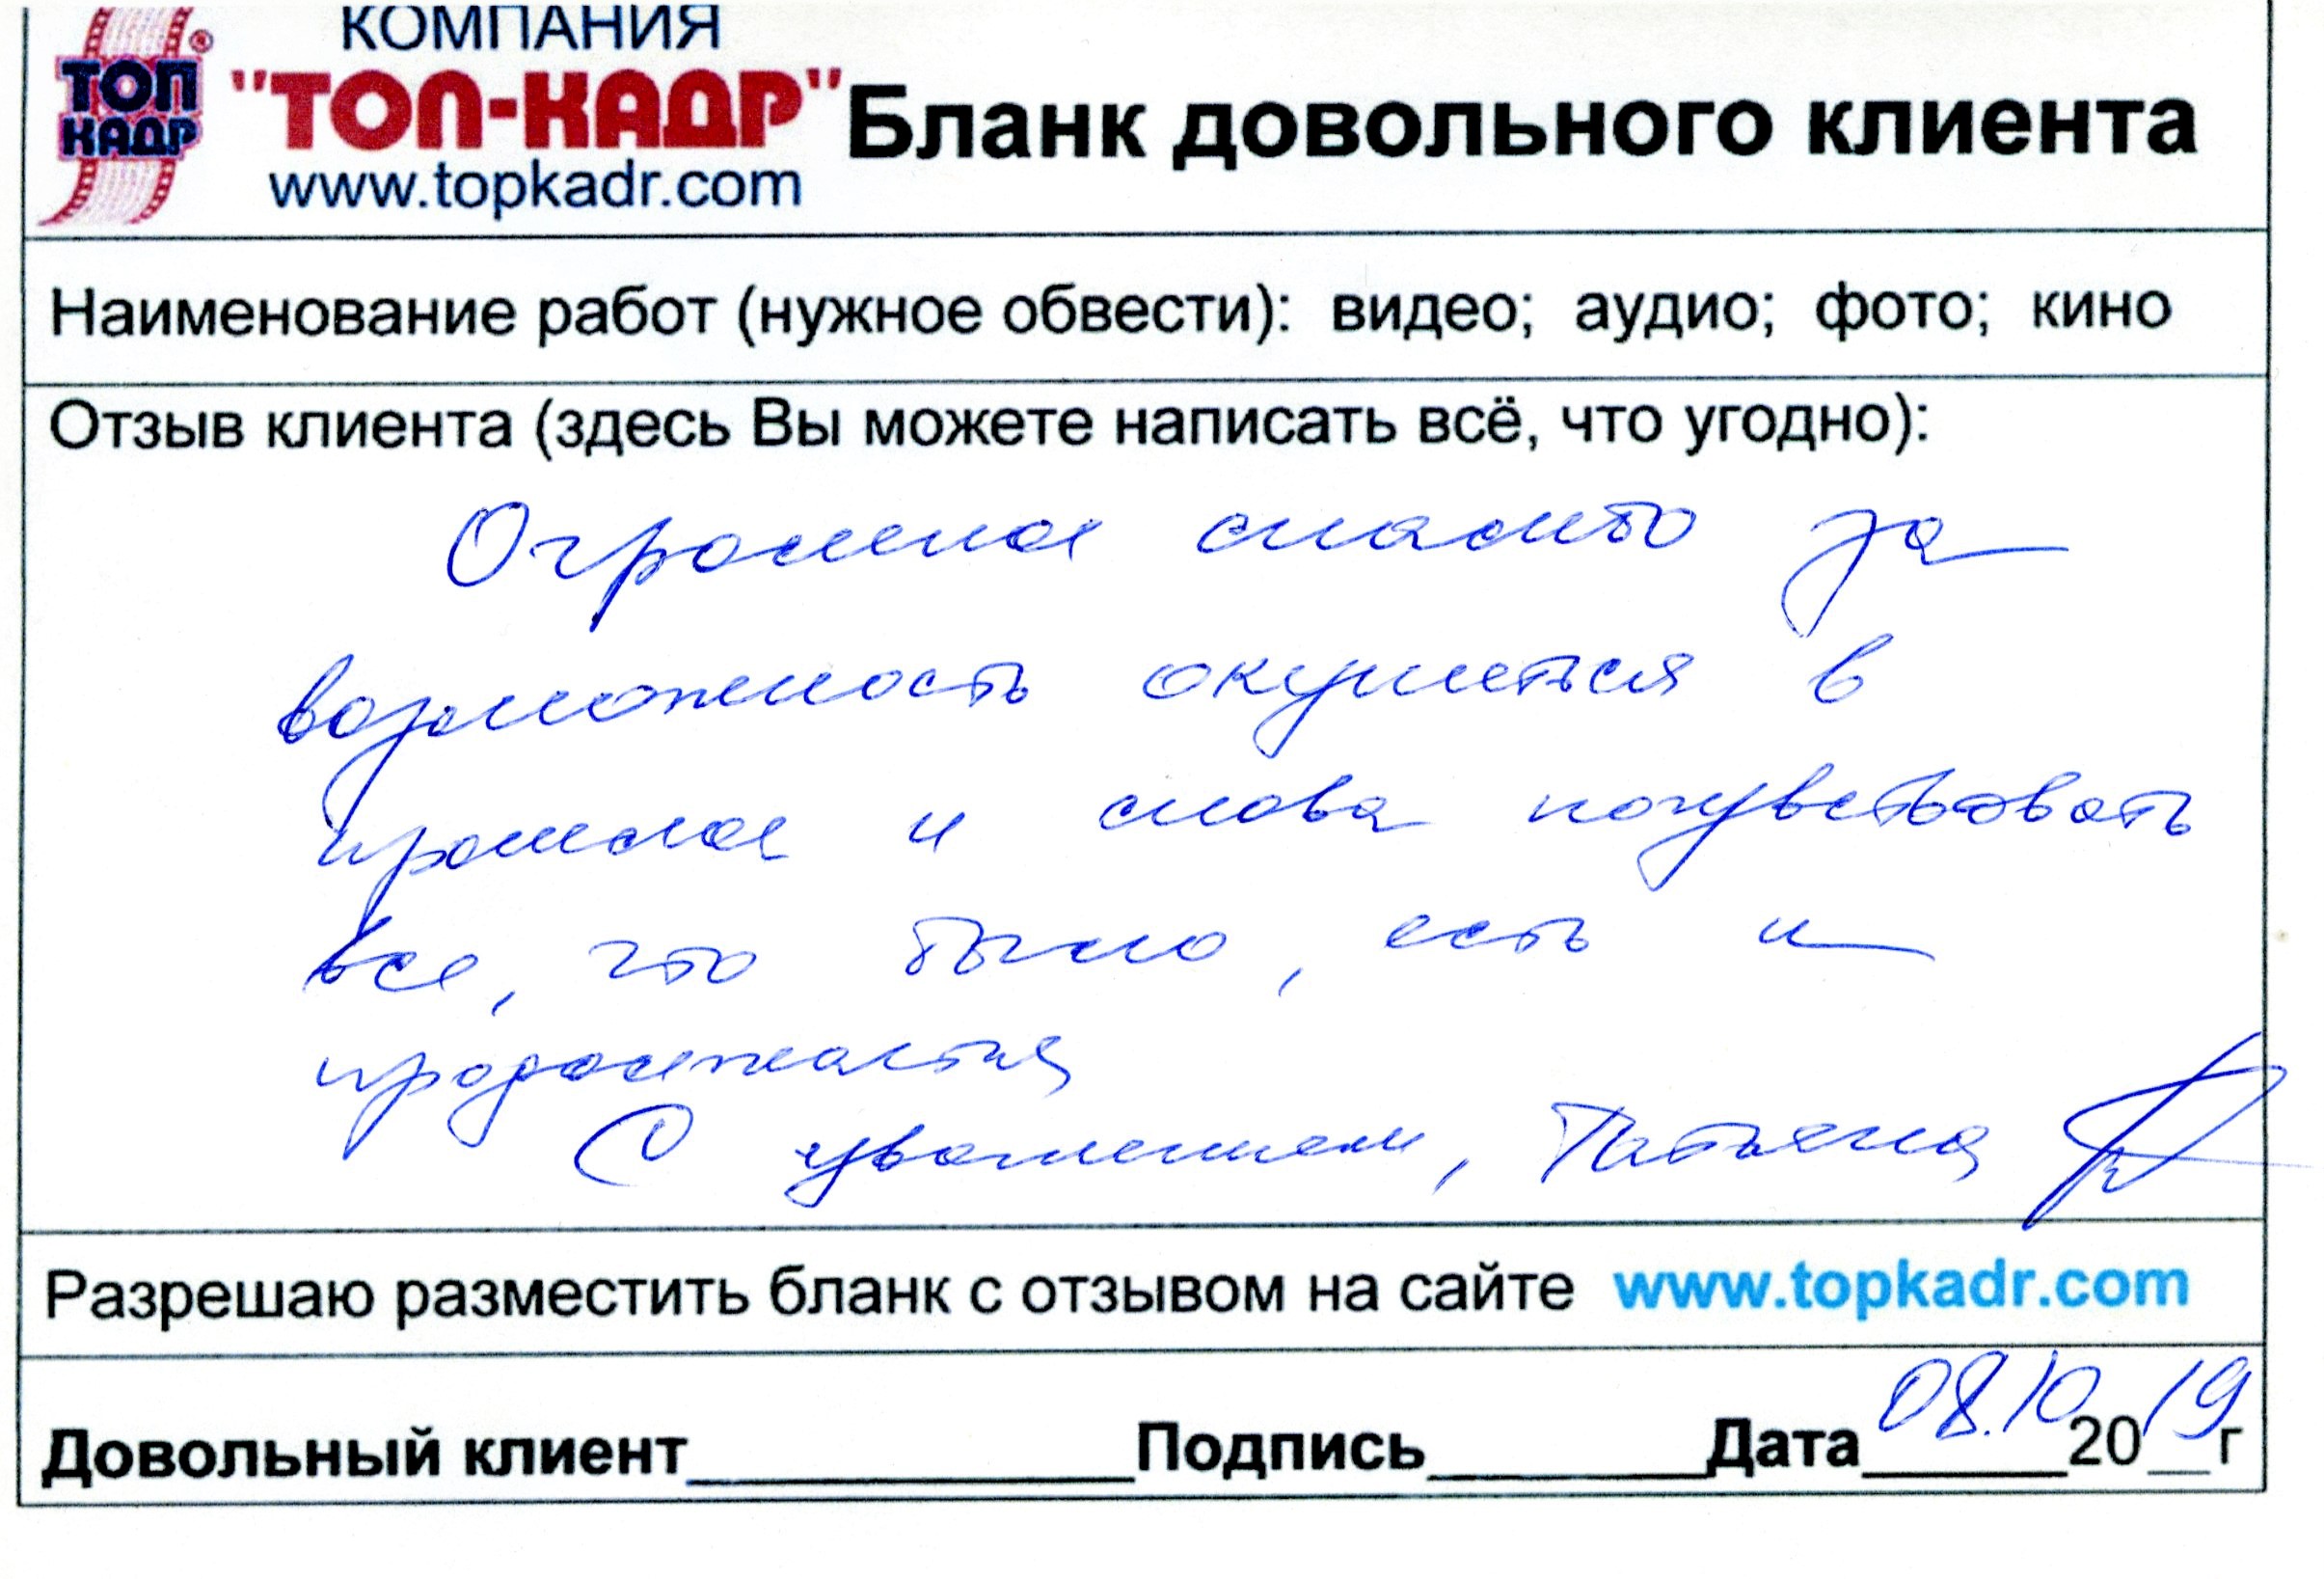 КОМПАНИЯ
ТОП КАДР ®
"ТОП-КАДР"
www.topkadr.com
Бланк довольного клиента
Наименование работ (нужное обвести): видео; аудио; фото; кино
Отзыв клиента (здесь Вы можете написать всё, что угодно):
Огромное спасибо за
возможность окунуться в
прошлое и снова почувствовать
все, что было, есть и
продолжается
С уважением, Татьяна
Разрешаю разместить бланк с отзывом на сайте www.topkadr.com
Довольный клиент__________Подпись______Дата 08.10 2019г